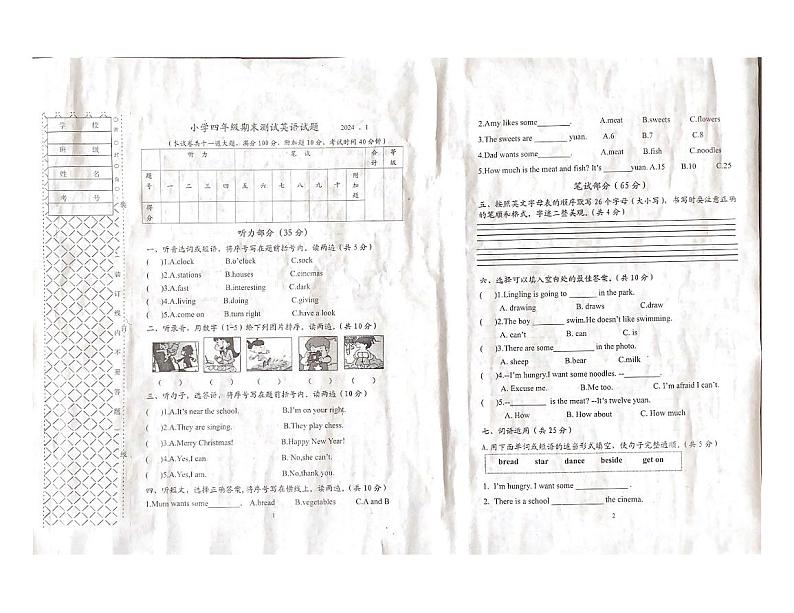 学 校
班 级
姓 名
考 号
装 订 线 内 不 要 答 题
小学四年级期末测试英语试题 2024 . 1
(本试卷共十一道大题，满分100分，附加题10分，考试时间40分钟)
听 力 笔 试 合计 等级
题号 一 二 三 四 五 六 七 八 九 十 十一 附加题
得分
听力部分 (35 分)
一、听音选词或短语，将序号写在题前括号内，读两遍(共 5 分)
( )1.A.clock B.o'clock C.sock
( )2.A.stations B.houses C.cinemas
( )3.A.fast B.interesting C.dark
( )4.A.living B.doing C.giving
( )5.A.come on B.turn right C.have a look
二、听录音，用数字 (1-5) 给下列图片排序，读两遍。(共 10 分)
( ) ( ) ( ) ( ) ( )
三、听句子，选答语，将序号写在题前括号内，读两遍 (10 分)
( )1.A.It's near the school. B.I'm on your right.
( )2.A.They are singing. B.They play chess.
( )3.A.Merry Christmas! B.Happy New Year!
( )4.A.Yes,I can. B.No,she can't.
( )5.A.Yes,I am. B.No,thank you.
四、听短文，选择正确答案，将序号写在横线上，读两遍。(共 10 分)
1.Mum wants some_______. A.bread B.vegetables C.A and B
1
2.Amy likes some_________. A.meat B.sweets C.flowers
3.The sweets are ________ yuan. A.6 B.7 C.8
4.Dad wants some________. A.meat B.fish C.noodles
5.How much is the meat and fish? It's_______yuan. A.15 B.10 C.25
笔试部分 (65 分)
五、按照英文字母表的顺序默写 26 个字母 (大小写)，书写时要注意正确
的笔顺和格式，字迹工整美观。(共 4 分)
六、选择可以填入空白处的最佳答案。(共 10 分)
( )1.Lingling is going to _______ in the park.
A. drawing B. draws C.draw
( )2.The boy ________ swim.He doesn't like swimming.
A. can't B. can C. is
( )3.There are some__________ in the photo.
A. sheep B.bear C.milk
( )4.--I'm hungry.I want some noodles. --__________.
A. Excuse me. B.Me too. C. I'm afraid I can't.
( )5.--__________ is the meat? --It's twelve yuan.
A. How B. How about C. How much
七、词语运用 (共 25 分)
A. 用下面单词或短语的适当形式填空，使句子完整通顺。(共 5 分)
bread star dance beside get on
1. I'm hungry. I want some _____________ .
2. There is a school _____________ the cinema.
2